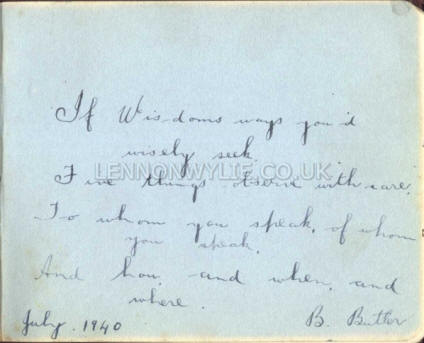 If Wisdoms ways you'd
wisely seek.
LENNONWYLIE.CO.UK
Five things observe with care,
To whom you speak, of whom
you speak,
And how, and when, and
where.
July. 1940 B. Butler